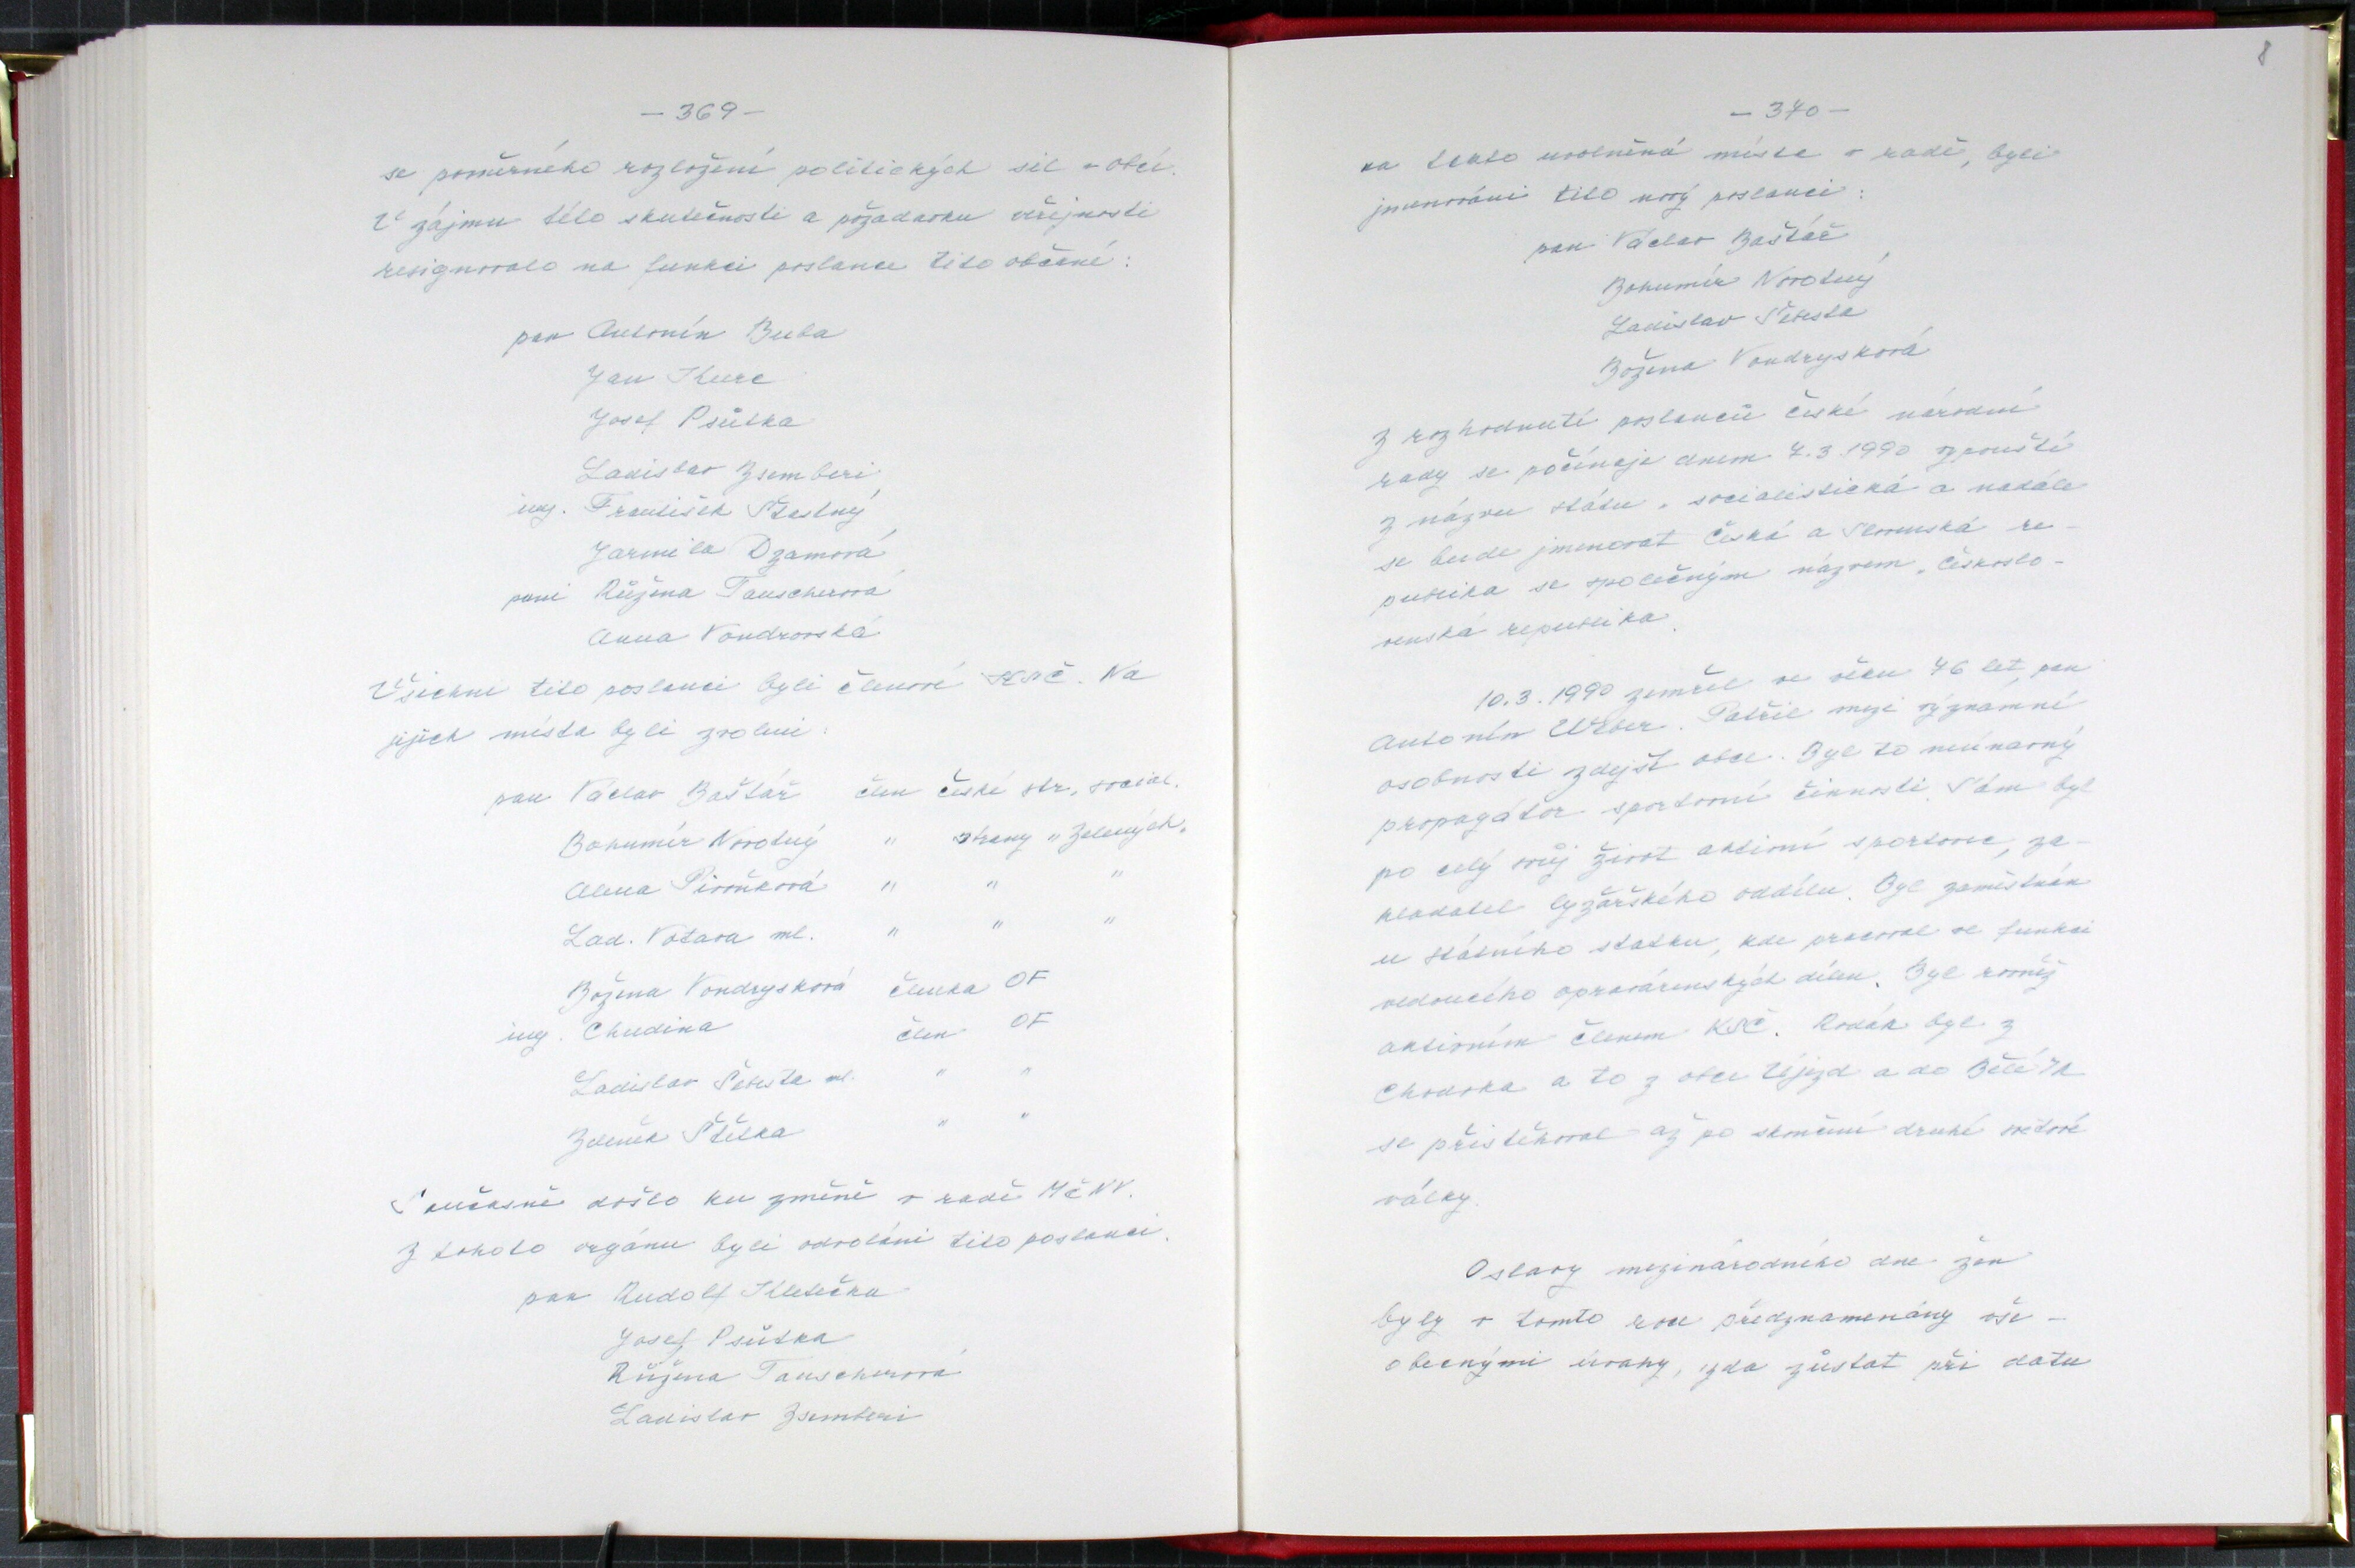 — 369 —
se poměrného rozložení politických sil v obci.
V zájmu této skutečnosti a požadavku veřejnosti
resignovalo na funkci poslance tito občané:
pan Antonín Buba
Jan
Josef Psůtka
Ladislav Zsemberi
ing. František Šťastný
Jarmila Dzamová
paní Růžena Tauscherová
Anna Vondrovská
Všichni tito poslanci byli členové KSČ. Na
jejich místa byli zvoleni:
pan Václav Baštář člen české str. social.
Bohumír Novotný " strany "Zelených"
Alena Pivoňková " " "
Lad. Votava ml. " " "
Božena Vondrysková členka OF
ing. Chudina člen OF
Ladislav Šebesta ml. " "
Zdeněk Štětka " "
Současně došlo ku změně v radě MěNV.
Z tohoto orgánu byli odvoláni tito poslanci.
pan Rudolf Kletečka
Josef Psůtka
Růžena Tauscherová
Ladislav Zsemberi
8
— 370 —
na takto uvolněná místa v radě, byli
jmenováni tito nový poslanci:
pan Václav Baštář
Bohumír Novotný
Ladislav Šebesta
Božena Vondrysková
Z rozhodnutí poslanců české národní
rady se počínaje dnem 7.3.1990 vypouští
z názvu státu "socialistická a nadále
se bude jmenovat Česká a Slovenská re-
publika se společným názvem "českoslo-
venská republika.
10.3.1990 zemřel ve věku 76 let, pan
Antonín Weber. Patřil mezi význámné
osobnosti zdejší obce. Byl to neúnavný
propagátor sportovní činnosti. Sám byl
po celý svůj život aktivní sportovec, za-
kladatel lyžařského oddílu. Byl zaměstnán
u státního statku, kde pracoval ve funkci
vedoucího opravárenských dílen. Byl rovněž
aktivním členem KSČ. Rodák byl z
Chodska a to z obce Újezd a do Bělé /R
se přistěhoval až po skončení druhé světové
války.
Oslavy mezinárodního dne žen
byly v tomto roce předznamenány vše-
obecnými úvahy, zda zůstat při datu